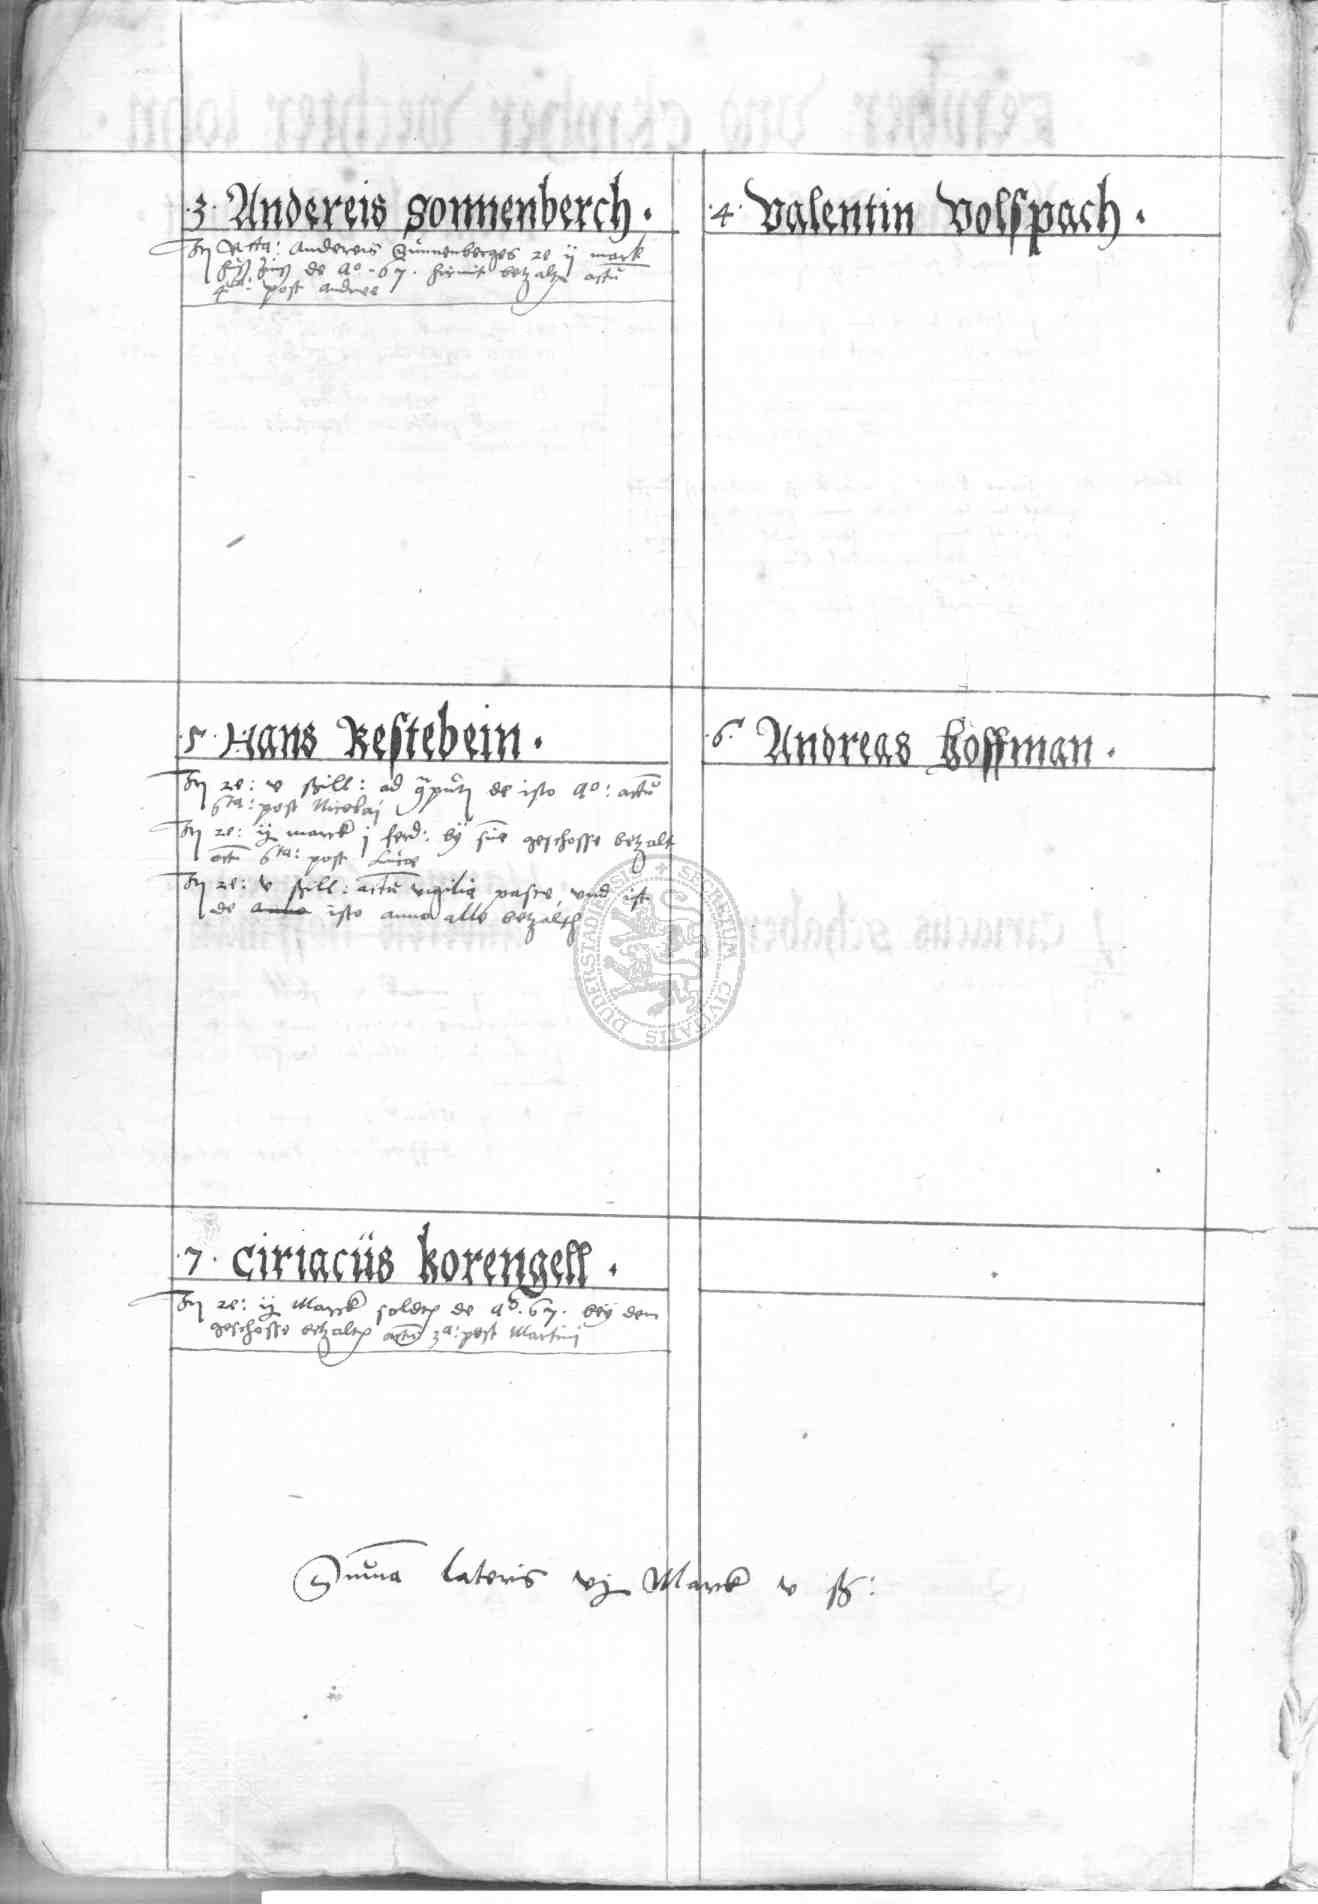 .3. Andereis Sonnenberch .
Andereis Sunnenberges re ij mark
de ao . 67 . hirmit betzalt actu
4ta: post Andree
.4. Valentin Volspach .
.5. Hans Kestebein .
re: v schill: ad de isto ao: actu
6ta: post Nicolaj
re: ij marck j ferd: bij sine geschosse betzalt
actu 6ta: post Luce
re: v schill: actu vigilie pasce, und ist
de anno isto anno alle betzalt
.6. Andreas Koffman .
.7. Ciriacüs Korengell .
re: ij Marck soldt de ao. 67. beij dem
geschosse betzalt actu 3a: post Martinj
Suma Lateris vij Marck v ß:
SECRETUM CIVITATIS DUDERSTADIENSIS